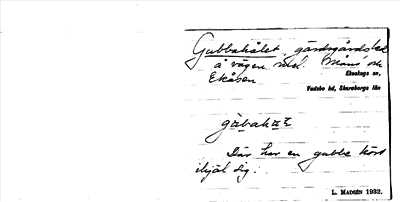 Gubbahålet, gårdsgårdsled
å vägen mel. Måns' och
Ekåsen
Ekeskogs sn,
Vadsbo hd, Skaraborgs län
gùbahɑ̀
Där har en gubbe kört
ihjäl dig.
L. MADSÉN 1932.